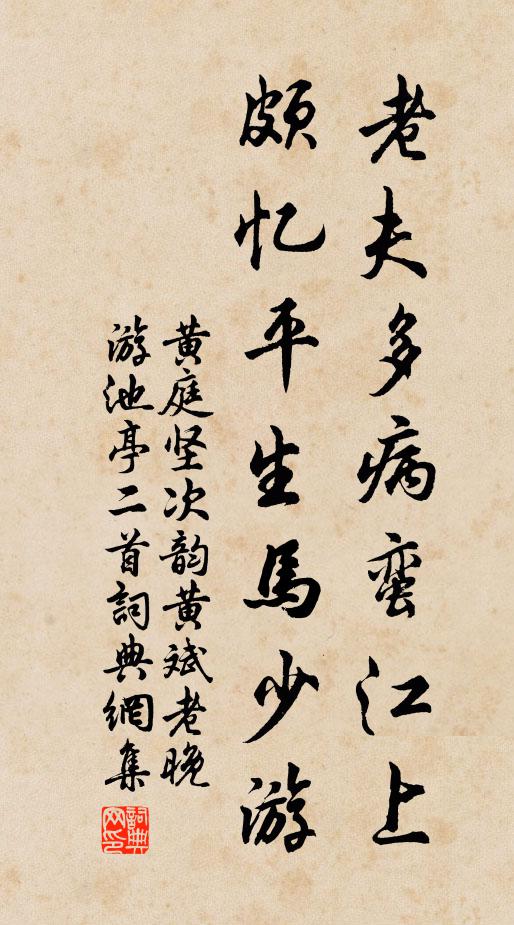 老夫多病蛮江上
颇忆平生馬少游
黄庭坚次韵黄斌老晚
游池亭二首詞典網集
詞典网印